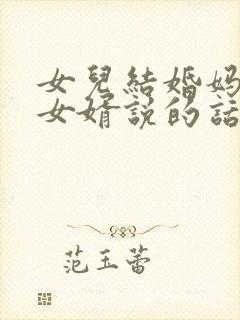 女兒結婚媽
女婿說的話
范玉蕾